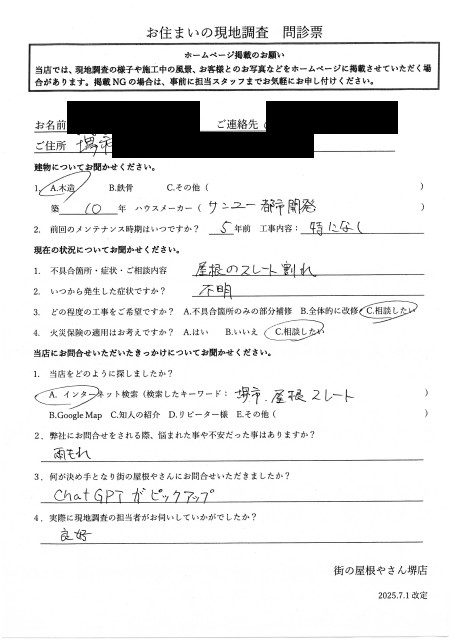 お住まいの現地調査 問診票
ホームページ掲載のお願い
当店では、現地調査の様子や施工中の風景、お客様とのお写真などをホームページに掲載させていただく場
合があります。掲載 NG の場合は、事前に担当スタッフまでお気軽にお申し付けください。
お名前 ご連絡先（
ご住所 堺市
建物についてお聞かせください。
1. A.木造 B.鉄骨 C.その他（ ）
築 10 年 ハウスメーカー（ サンユー都市開発 ）
2. 前回のメンテナンス時期はいつですか？ 5 年前 工事内容： 特になし
現在の状況についてお聞かせください。
1. 不具合箇所・症状・ご相談内容 屋根のスレート割れ
2. いつから発生した症状ですか？ 不明
3. どの程度の工事をご希望ですか？ A.不具合箇所のみの部分補修 B.全体的に改修 C.相談したい
4. 火災保険の適用はお考えですか？ A.はい B.いいえ C.相談したい
当店にお問合せいただいたきっかけについてお聞かせください。
1. 当店をどのように探しましたか？
A. インターネット検索（検索したキーワード： 堺市、屋根スレート ）
B.Google Map C.知人の紹介 D.リピーター様 E.その他（ ）
2．弊社にお問合せをされる際、悩まれた事や不安だった事はありますか？
雨もれ
3．何が決め手となり街の屋根やさんにお問合せいただきましたか？
ChatGPTがピックアップ
4．実際に現地調査の担当者がお伺していかがでしたか？
良好
街の屋根やさん堺店
2025.7.1 改定